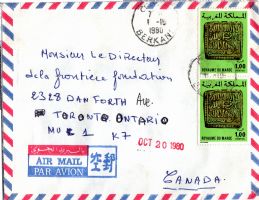 7
1-10
1980
BERKAN
المملكة المغربية
1.00
ROYAUME DU MAROC
المملكة المغربية
1.00
ROYAUME DU MAROC
Monsieur Le Directeur
de la frontière foundation
2328 DANFORTH Ave.
TORONTO ONTARIO
1 K7
OCT 20 1980
بالبريد الجوي
AIR MAIL
PAR AVION
空郵
CANADA.